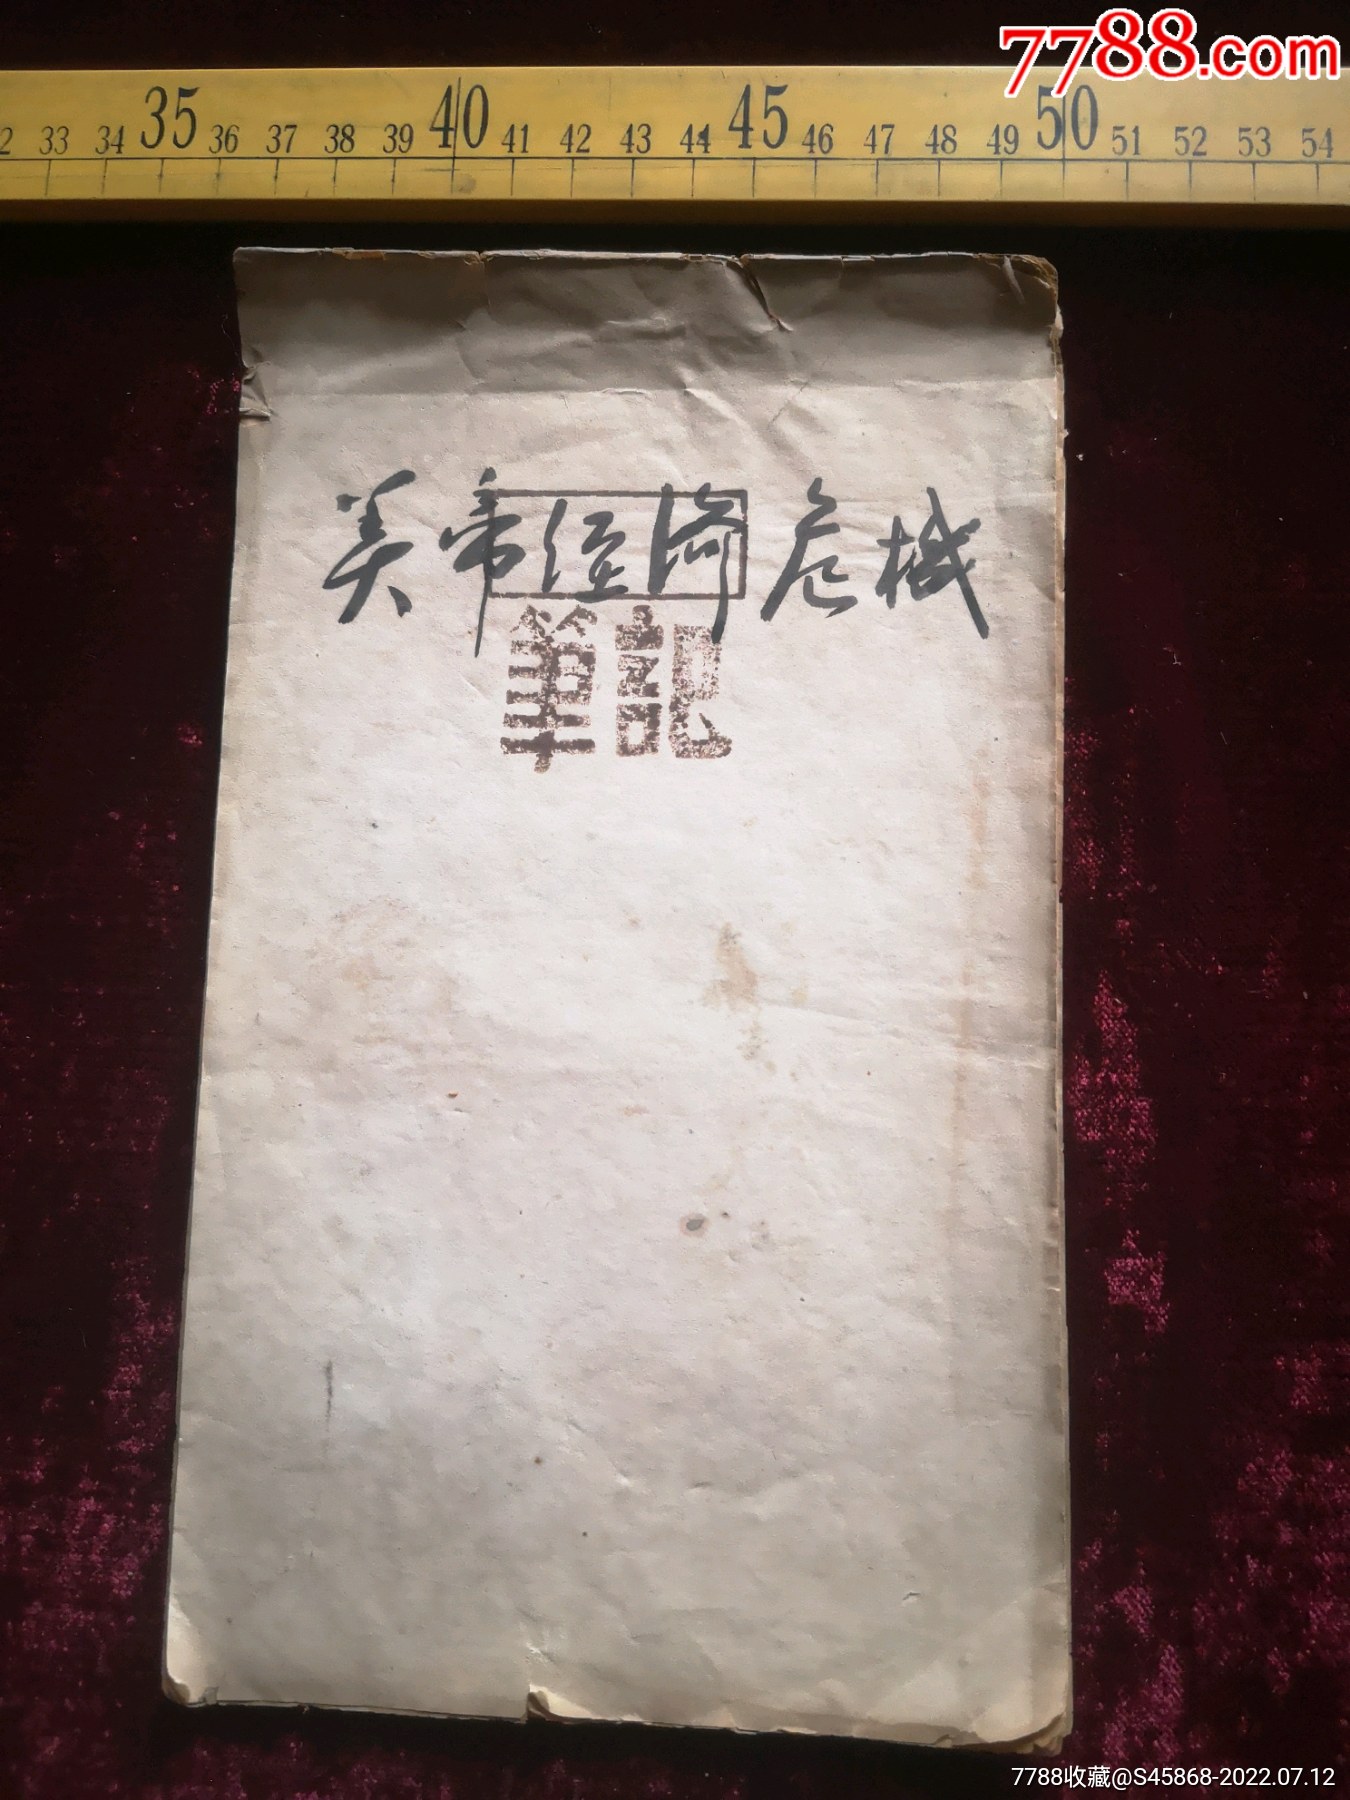 7788.com
2 33 34 35 36 37 38 39 40 41 42 43 44 45 46 47 48 49 50 51 52 53 54
美帝经济危械
筆記
7788收藏@S45868-2022.07.12